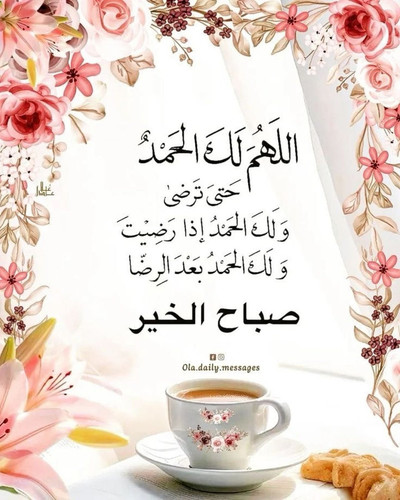 اللَّهُمَّ لَكَ الحَمْدُ
حَتىَ تَرضىٰ
وَلَكَ الحَمْدُ إذا رَضِيْتَ
وَلَكَ الحَمْدُ بَعْدَ الرِضَّا
صباح الخير
Ola.daily.messages